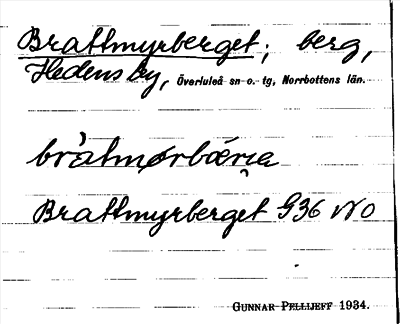 Brattmyrberget; berg,
Hedens by, Överluleå sn o. tg, Norrbottens län.
bràtmørbǽrɩ̣a
Brattmyrberget G36 NO
GUNNAR PELLIJEFF 1934.